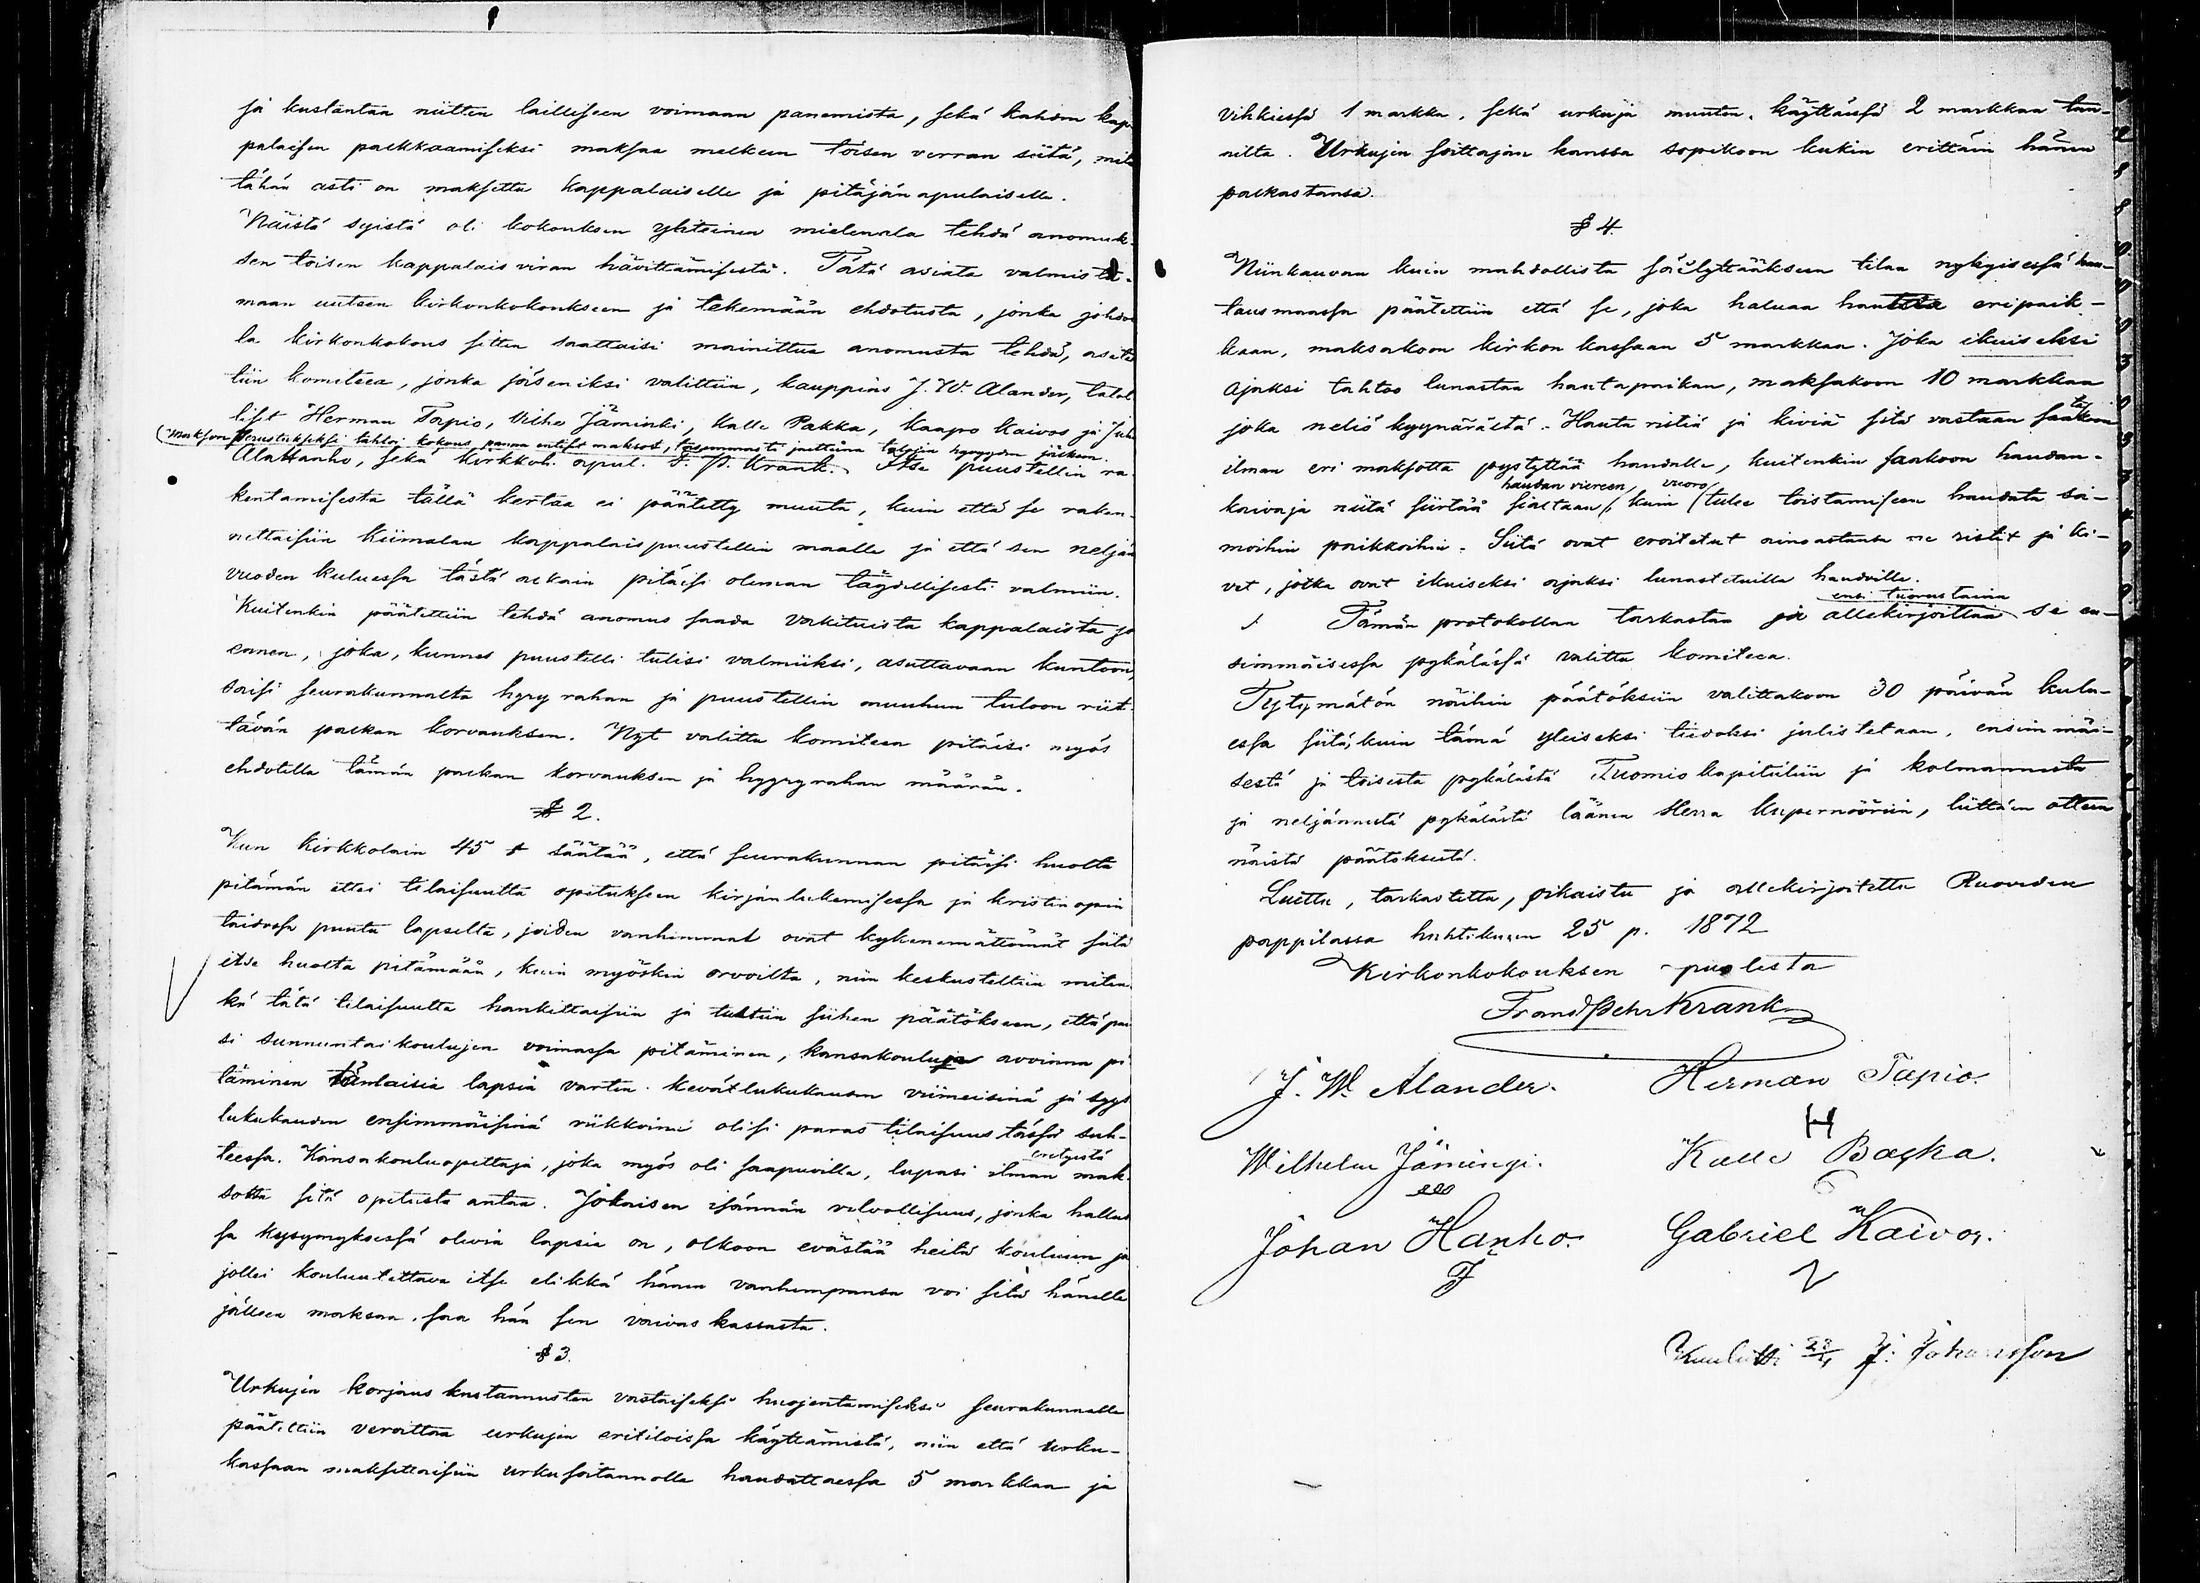 ja kustantaa niitten lailliseen voimaan panemista, sekä kahden kap-
palaisen palkkaamiseksi maksaa melkein toisen verran siitä, mitä
tähän asti on maksettu kappalaiselle ja pitäjän apulaiselle.
Näistä syistä oli kokouksen yhteinen mielenala tehdä anomuk-
sen toisen kappalais viran hävittämisestä. Tätä asiata valmista-
maan uuteen kirkonkokoukseen ja tekemään ehdotusta, jonka johdol
la kirkonkokous sitten saattaisi mainittua anomusta tehdä, asetet
tiin komitea, jonka jäseniksi valittiin, kauppias J. W. Alander, talol
liset Herman Tapio, Wilhe Jäminki, Kalle Pakka, Kaapro Kaivos ja Juha
(Maksun Perustukseksi tahtoi kokous panna entiset maksot, tasemmasti jaettuna talojen hyvyyden jälkeen.
Alattanho, sekä Kirkkoh. apul. F. P. Krank. Itse puustellin ra-
kentamisesta tällä kertaa ei päätetty muuta, kuin että se raken-
nettaisiin Kiimalan kappalaispuustellin maalle ja että sen neljän
vuoden kuluessa tästä aikain pitäisi oleman täydellisesti valmiin.
Kuitenkin päätettiin tehdä anomus saada vakituista kappalaista jo
ennen, joka, kunnes puustelli tulisi valmiiksi, asuttavaan kuntoon,
saisi seurakunnalta hyyrahan ja puustellin muuhun tuloon riit-
tävän palkan korvauksen. Nyt valittu komitea pitäisi myös
ehdotella tämän palkan korvauksen ja hyyryrahan määrän.
§ 2.
Kun Kirkkolain 45 § säätää, että seurakunnan pitäisi huolta
pitämän ettei tilaisuutta opetukseen kirjanlukemisessa ja kristin opin
taidossa puutu lapselta, joiden vanhimmat ovat kykenemättömät siitä
itse huolta pitämään, kuin myöskin orvoilta, niin keskusteltiin miten-
kä tätä tilaisuutta hankittaisiin ja tultiin siihen päätökseen, että pai
si sunnuntaikoulujen voimassa pitäminen, kansakouluja avoinna pi
täminen tämlaisia lapsia varten kevätlukukauden viimeisinä ja syys
lukukauden ensimmäisinä viikkoina olisi paras tilaisuus tässä suh-
teessa. Kansakouluopettaja, joka myös oli saapuvilla, lupasi ilman mak-
sotta sitä opetusta antaa. Jokaisen isännän velvollisuus, jonka hallus
sa kysymyksessä olevia lapsia on, olkoon evästää heitä kouluun ja
jollei kouluutettava itse elikkä hänen vanhempansa voi sitä hänelle
jällen maksaa, saa hän sen vaivas kassasta.
§ 3.
Urkujen korjaus kustannusten vastaiseksi huojentamiseksi seurakunnalle
päätettiin verottaa urkujen erityisissä käyttämistä, niin että urku-
kassaan maksettaisiin urkusoitannolle haudattaessa 5 markkaa ja
vihkiessä 1 markka, sekä urkuja muuten käyttäissä 2 markkaa tun-
nilta. Urkujen soittajan kanssa sopikoon kukin erittäin hänen
palkastansa.
§ 4.
Niinkauvan kuin mahdollista säilyttääkseen tilaa nykyisessä hau-
tausmaassa päätettiin että se, joka haluaa hautaa eripaik-
kaan, maksakoon kirkon kassaan 5 markkaa. Joka ikuiseksi
ajaksi tahtoo lunastaa hautapaikan, maksakoon 10 markkaa
joka neliö kyynärältä. Hauta ristiä ja kiviä sitä vastaan saakoon
ilman eri maksotta pystyttää haudalle, kuitenkin saakoon haudan-
haudan viereen, vuoro
kaivaja niitä siirtää sialtaan, kuin tulee toistamiseen haudata sa-
moihin paikkoihin. Siitä ovat eroitetut ainoastansa ne ristit ja ki-
vet, jotka ovat ikuiseksi ajaksi lunastetuilla haudoilla.
ensi tiorustaina
Tämän protokollan tarkastaa ja allekirjoittaa se en-
simmäisessä pykälässä valittu komitea.
Tytymätön näihin päätöksiin valittakoon 30 päivän kulu-
essa siitä, kuin tämä yleiseksi tiedoksi julistetaan, ensimmäi-
sestä ja toisesta pykälästä Tuomiokapituliin ja kolmannesta
ja neljännestä pykälästä läänin Herra Kupernööriin, liittäen otteen
näistä päätöksistä.
Luettu, tarkastettu, oikaistu ja allekirjoitettu Ruoveden
pappilassa huhtikuun 25 p. 1872
Kirkonkokouksen puolesta
Frans Pehr Krank
J. W. Alander. Herman Tapio.
Wilhelm Jämingi. Kalle Backa.
Johan Hanho. Gabriel Kaivos.
Kuulutti 28/4 J. Johansson